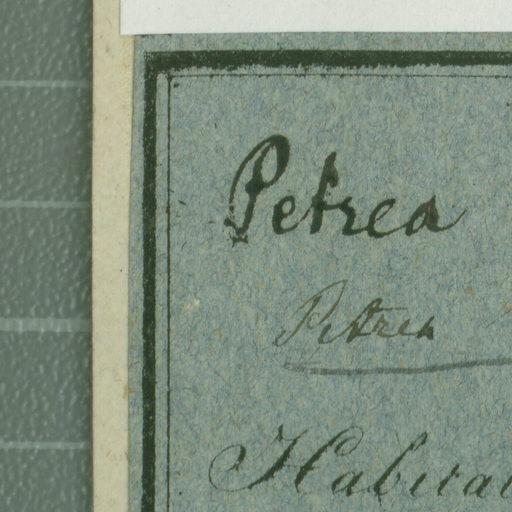 Petrea
Petrea
Habitat